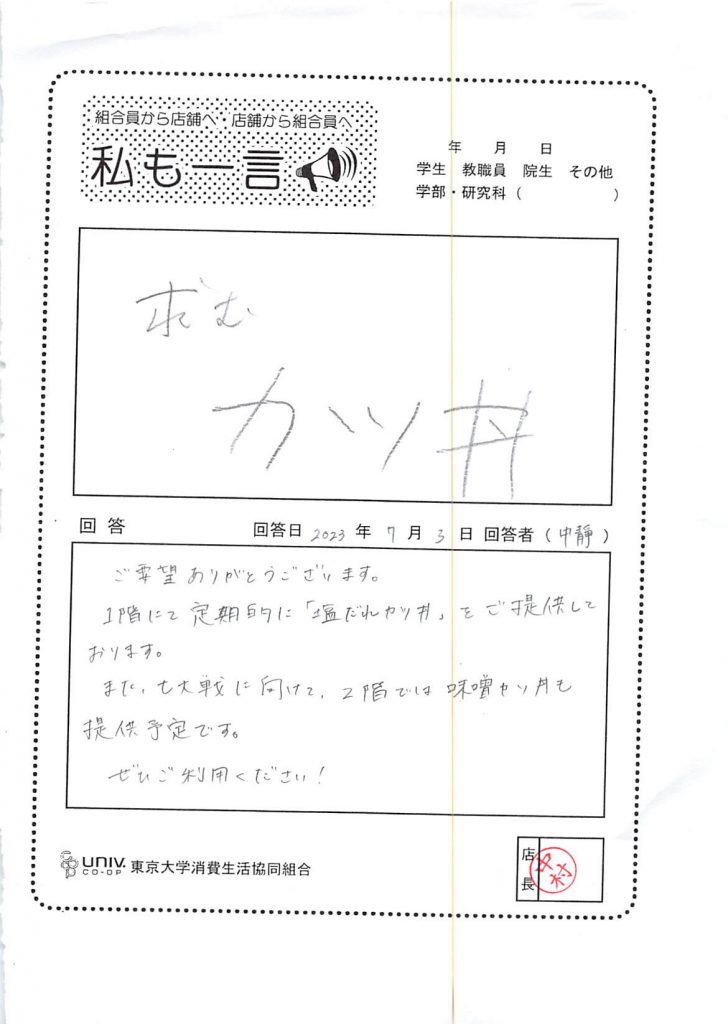 組合員から店舗へ 店舗から組合員へ
私も一言
年 月 日
学生 教職員 院生 その他
学部・研究科( )
求む
カツ丼
回答 回答日 2023 年 7 月 3 日 回答者(中靜)
ご要望ありがとうございます。
1階にて定期的に「塩だれカツ丼」をご提供して
おります。
また、七大戦に向けて、2階では味噌カツ丼も
提供予定です。
ぜひご利用ください!
UNIV. CO-OP 東京大学消費生活協同組合
店長 中村